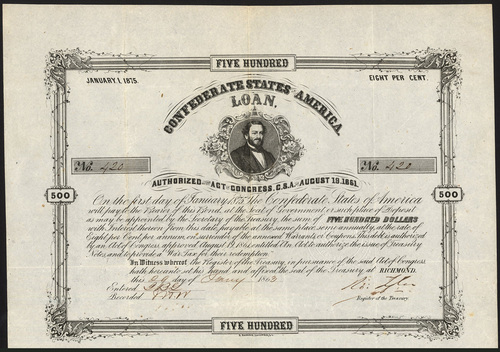 FIVE HUNDRED
JANUARY, 1, 1875.
EIGHT PER CENT.
CONFEDERATE STATES AMERICA.
LOAN,
No. 420
No. 420
AUTHORIZED ACT CONGRESS, C.S.A. AUGUST 19. 1861.
500
500
On the first day of January 1875 the Confederate States of America
will pay to the Bearer of this Bond, at the seat of Government or such place of Deposit
as may be appointed by the Secretary of the Treasury, the sum of FIVE HUNDRED DOLLARS
with Interest thereon from this date, payable at the same place semi annually, at the rate of
Eight per Cent per annum, on surrender of the annexed Warrants or Coupons. This debt is authorized
by an Act of Congress, approved August 19, 1861, entitled An Act to authorize the issue of Treasury
Notes, and to provide a War Tax for their redemption.
In Witness whereof, the Register of the Treasury, in pursuance of the said Act of Congress
hath hereunto set his hand and affixed the seal of the Treasury at RICHMOND,
this day of 1863
Entered
Recorded
Register of the Treasury
FIVE HUNDRED